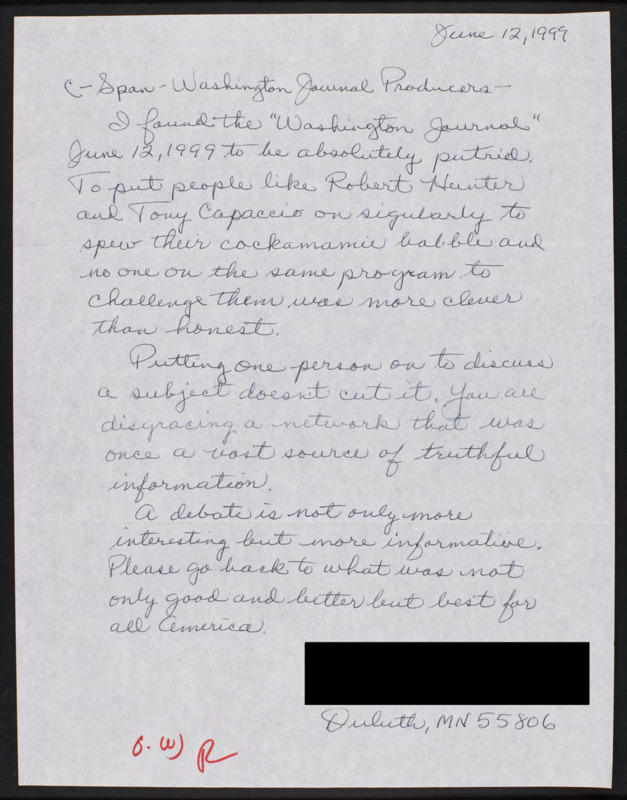 June 12, 1999
C-Span-Washington Journal Producers-
I found the "Washington Journal"
June 12, 1999 to be absolutely putrid.
To put people like Robert Hunter
and Tony Capaccio on sigularly to
spew their cockamamie babble and
no one on the same program to
challenge them was more clever
than honest.
Putting one person on to discuss
a subject doesnt cut it. You are
disgracing a network that was
once a vast source of truthful
information.
A debate is not only more
interesting but more informative.
Please go back to what was not
only good and better but best for
all America.
Duluth, MN 55806